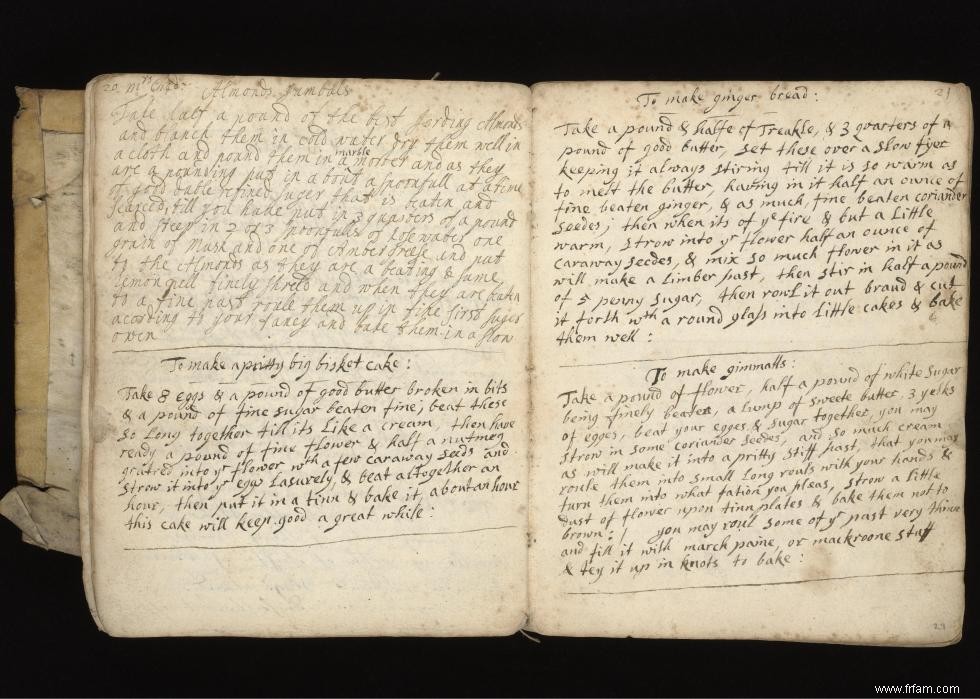 20 Mrs
Almonds Jumbals
Take half a pound of the best Jording Almonds
and blanch them in cold water dry them well in
a cloth and pound them in a marble morter and as they
are a pounding put in about a spoonfull at a time
of good duble refined suger that is beaten and
searced, till you have put in 3 quarters of a pound
and steep in 2 or 3 spoonfuls of Rosewater one
grain of Musk and one of Ambergreese and put
to the Almonds as they are a beating & some
lemon pell finely shred and when they are beaten
to a fine past roule them up in fine sifted suger
acording to your fancy and bake them in a slow
oven
To make a pritty big bisket cake:
Take 8 eggs & a pound of good butter broken in bits
& a pound of fine sugar beaten fine; beat these
so long together till its like a cream, then have
ready a pound of fine flower & half a nutmeg
grated into yr flower wth a few caraway seeds and
strow it into yr eggs Lasurely, & beat altogether an
hour, then put it in a tinn & bake it, about an hour
this cake will keep good a great while:
21
To make ginger bread:
Take a pound & halfe of Treakle, & 3 quarters of a
pound of good butter, set these over a slow fyer
keeping it always stiring till it is so warm as
to melt the butter, having in it half an ounce of
fine beaten ginger, & as much, fine beaten coriander
seedes; then when its of ye fire & but a little
warm, strow into yr flower half an ounce of
caraway seedes, & mix so much flower in it as
will make a Limber past, then stir in half a pound
of 5 penny sugar, then rowl it out braud & cut
it forth wth a round glass into Little cakes & bake
them well:
To make gimmalls:
Take a pound of flower, half a pound of white sugar
being finely beaten, a Lump of sweete butter, 3 yelks
of egges, beat your egges & sugar together, you may
strow in some coriander seedes, and so much cream
as will make it into a pritty stiff past, that you may
route them into small Long rouls with your hands &
turn them into what fation you pleas, strow a little
dust of flower upon tinn plates & bake them not to
brown: you may roul some of yr past very thinn
and fill it with march paine, or mackroone stuff
& tey it up in knots to bake:
21
www.frfam.com